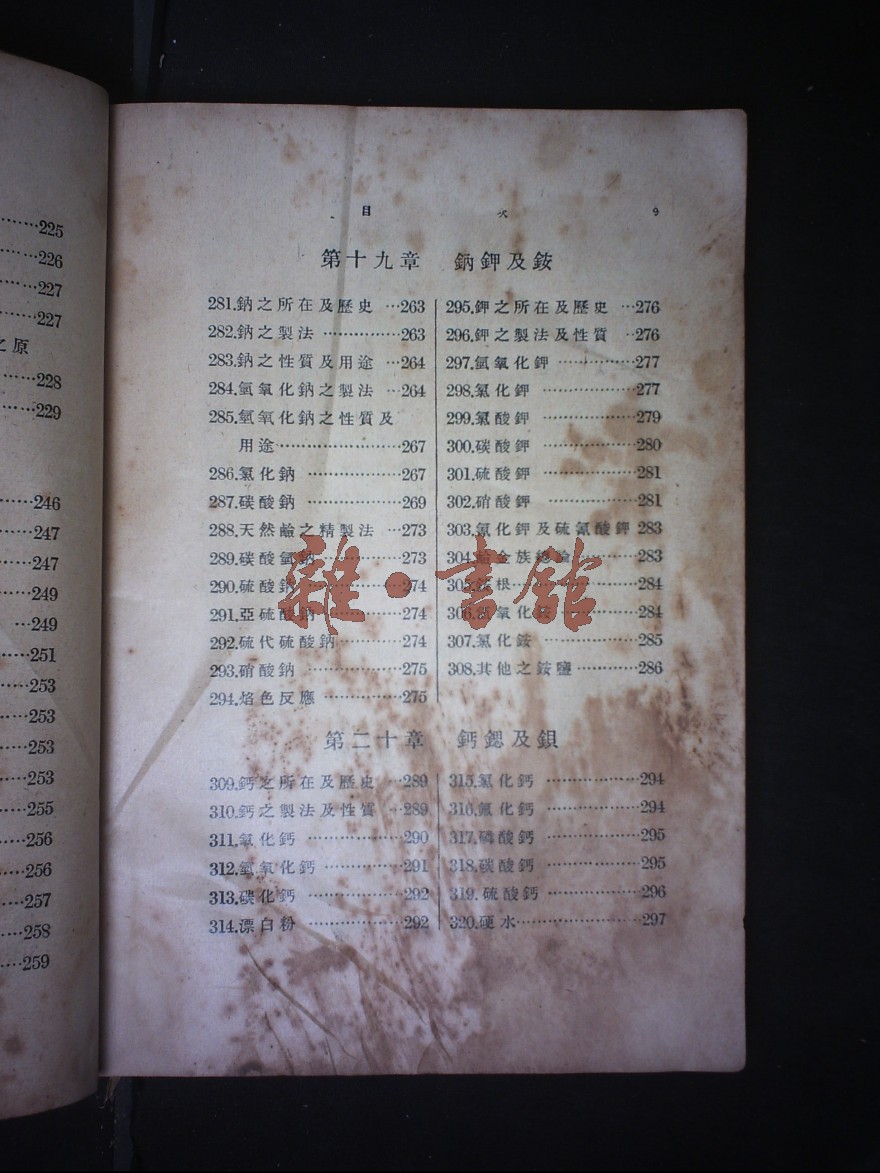 ……225
……226
……227
……227
之原
……228
……229
……246
……247
……247
……249
…249
……251
……253
……253
……253
……253
……255
……256
……256
……257
……258
……259
目 次 9
第十九章 鈉鉀及銨
281.鈉之所在及歷史…263
282.鈉之製法……………263
283.鈉之性質及用途…264
284.氫氧化鈉之製法…264
285.氫氧化鈉之性質及
用途……………………267
286.氯化鈉………………267
287.碳酸鈉………………269
288.天然鹼之精製法…273
289.碳酸氫鈉……………273
290.硫酸鈉………………274
291.亞硫酸鈉……………274
292.硫代硫酸鈉…………274
293.硝酸鈉………………275
294.焰色反應……………275
295.鉀之所在及歷史…276
296.鉀之製法及性質…276
297.氫氧化鉀……………277
298.氯化鉀………………277
299.氯酸鉀………………279
300.碳酸鉀………………280
301.硫酸鉀………………281
302.硝酸鉀………………281
303.氰化鉀及硫氰酸鉀 283
304.鹼金族總論…………283
305.銨根…………………284
306.氫氧化銨……………284
307.氯化銨………………285
308.其他之銨鹽…………286
雜·書館
第二十章 鈣鍶及鋇
309.鈣之所在及歷史…289
310.鈣之製法及性質…289
311.氧化鈣………………290
312.氫氧化鈣……………291
313.碳化鈣………………292
314.漂白粉………………292
315.氯化鈣………………294
316.氟化鈣………………294
317.磷酸鈣………………295
318.碳酸鈣………………295
319.硫酸鈣………………296
320.硬水…………………297